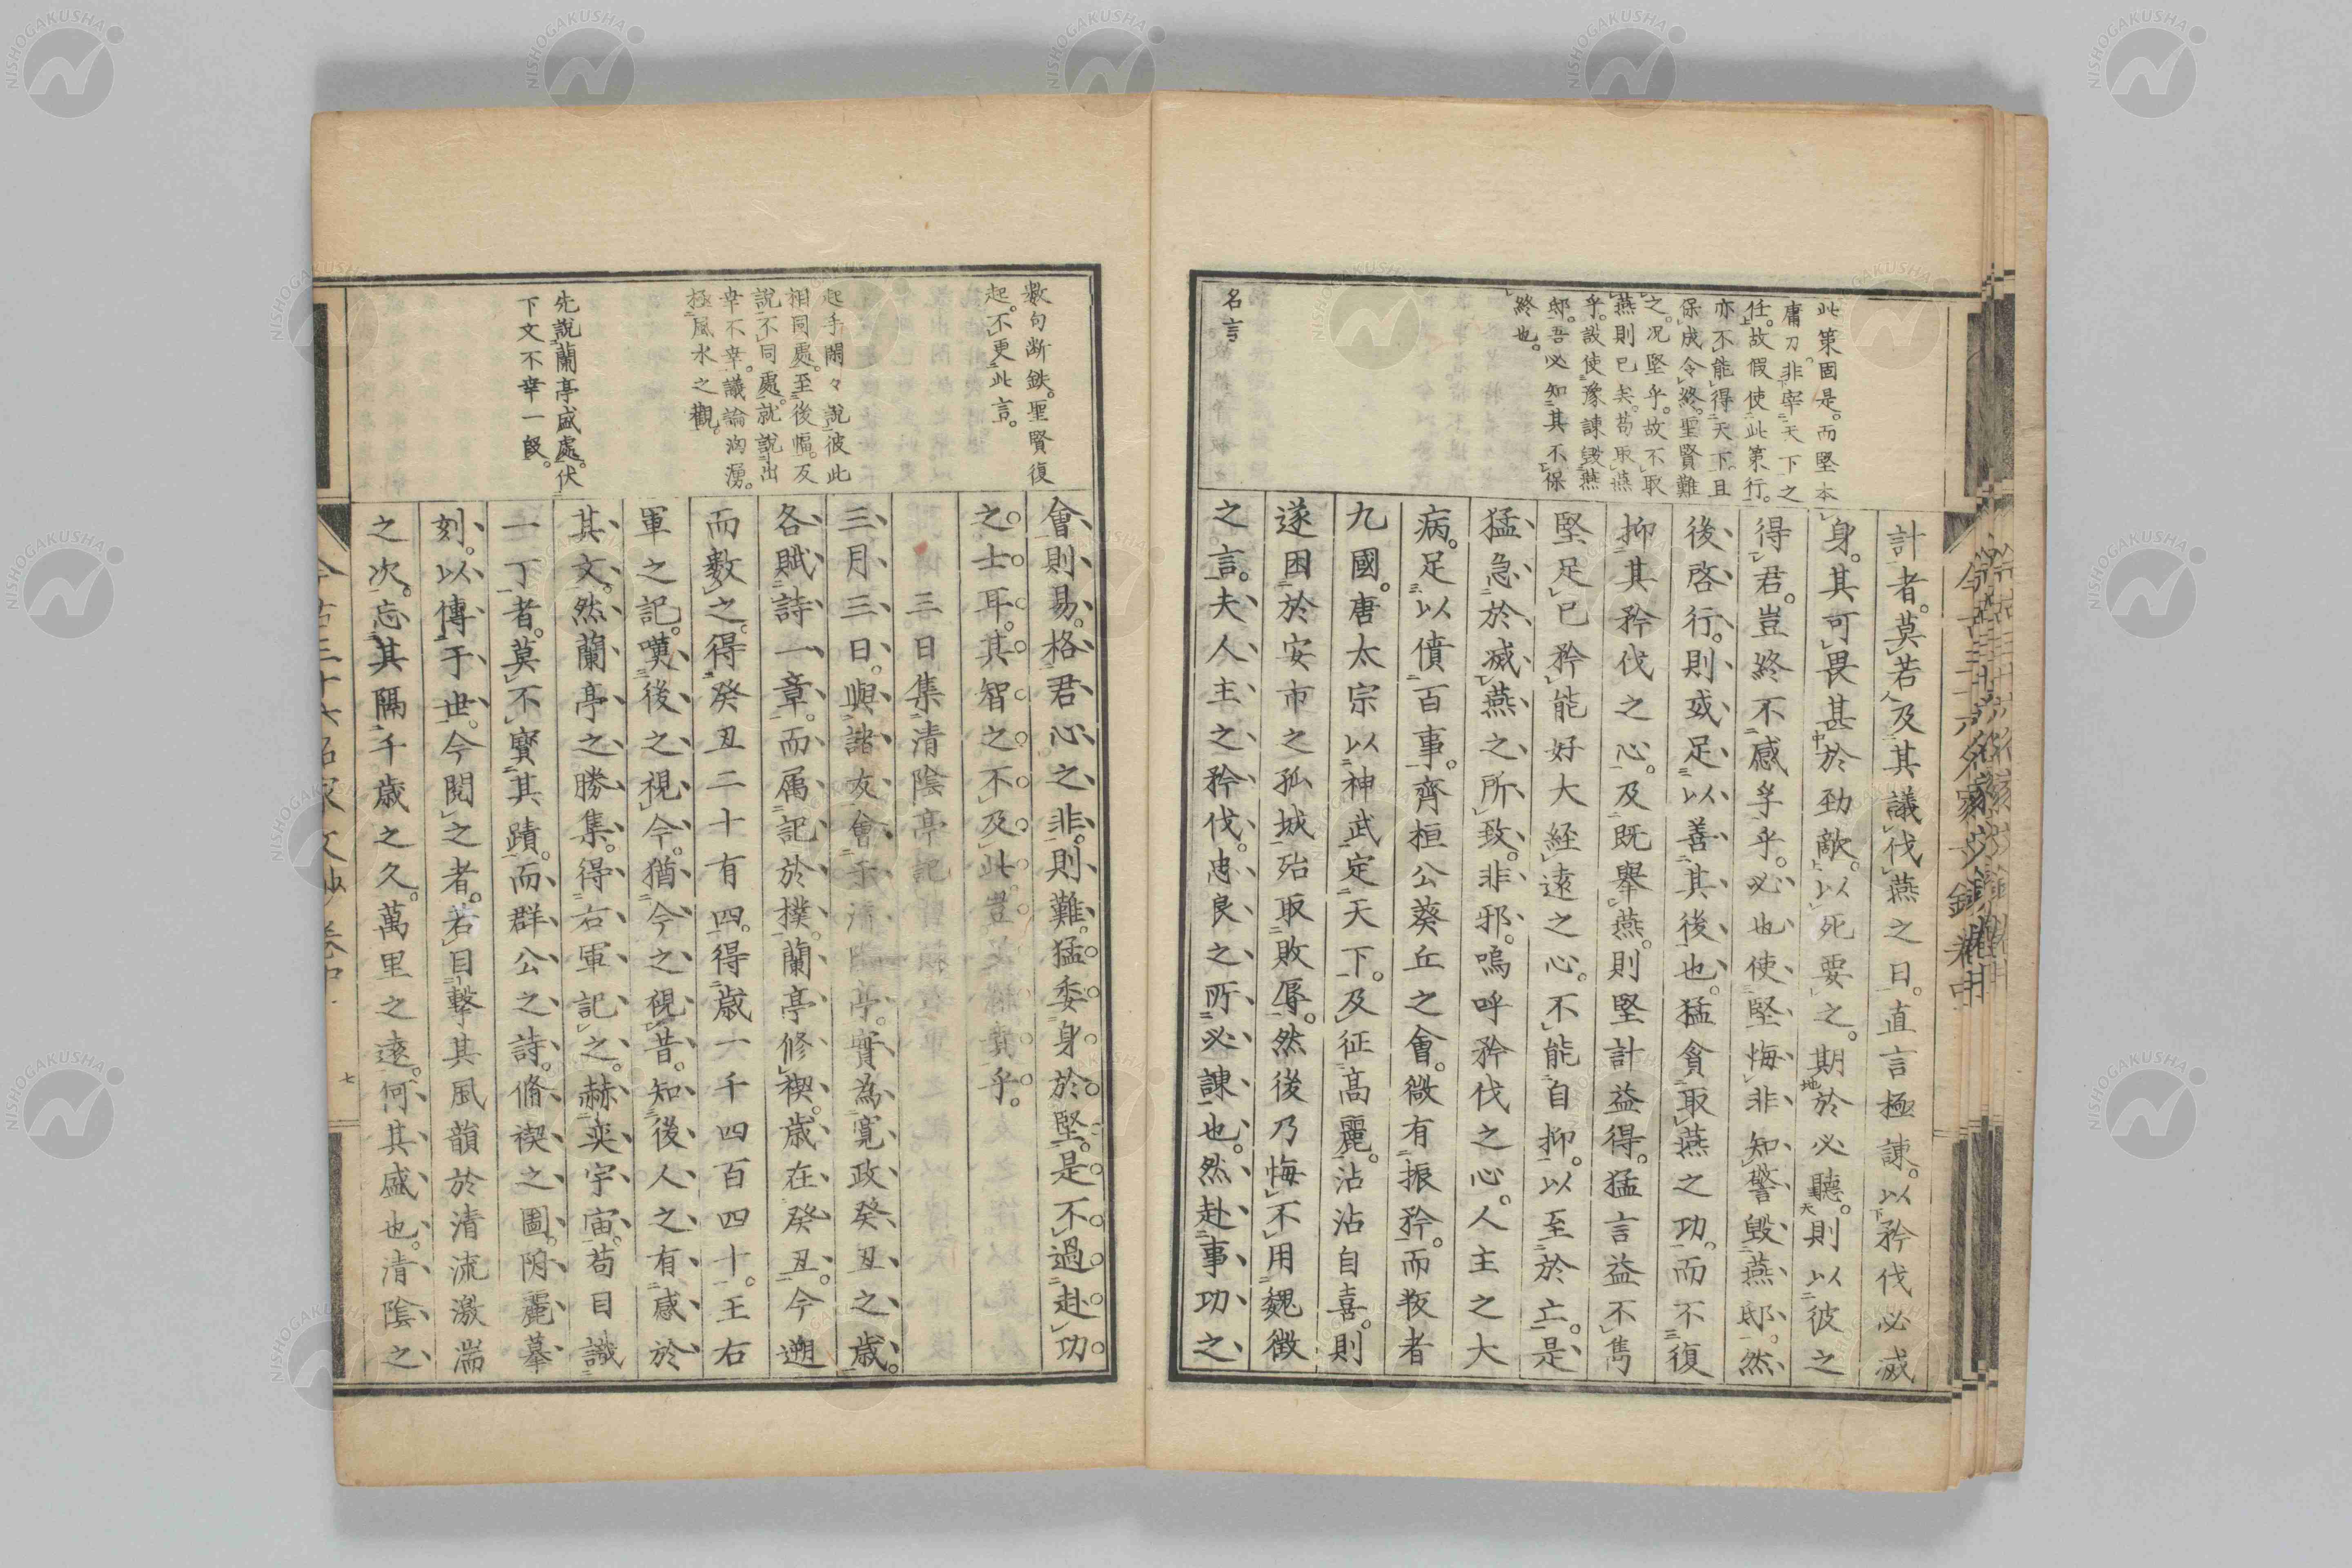 此第固是。而堅本
庸刀。非宰天下之
任。故假使此第行。
亦不能得天下。且
保成令終。聖賢難
之。况堅乎。故不取
燕則已矣。苟取燕
乎。設使豫諫毀燕
邸。吾必知其不保
終也。
名言
計者。莫若及其議伐燕之日。直言極諫。以矜伐必滅
身。其可畏甚於勁敵。以死要之。期於必聽。則以彼之
得君。豈終不感孚乎。必也使堅悔非知警。毀燕邸。然
後啓行。則或足以善其後也。猛貪取燕之功。而不復
抑其矜伐之心。及既舉燕。則堅計益得。猛言益不雋
堅足已矜能好大経遠之心。不能自抑。以至於亡。是
猛急於滅燕之所致。非邪。嗚呼矜伐之心。人主之大
病。足以僨百事。齊桓公葵丘之會。微有振矜。而叛者
九國。唐太宗以神武定天下。及征高麗。沾沾自喜。則
遂困於安市之孤城。殆取敗辱。然後乃悔不用魏徵
之言。夫人主之矜伐。忠良之所必諫也。然赴事功之
今古三十六名家文鈔 卷中
數句斷鉄。聖賢復
起。不更此言。
起手閑々說彼此
相同處。至後幅。反
說不同處。就說出
幸不幸。議論洶湧。
極風水之觀。
先說蘭亭盛處。伏
下文不幸一段。
會則易。格君心之非。則難。猛委身於堅。是不過赴功
之士耳。其智之不及此。豈
乎。
三日集清陰亭記
三月三日。與諸友會于清陰亭。實為寬政癸丑之歳。
各賦詩一章。而属記於撲。蘭亭修禊。歳在癸丑。今遡
而數之。得癸丑二十有四。得歳一千四百四十。王右
軍之記。嘆後之視今。猶今之視昔。知後人之有感於
其文。然蘭亭之勝集。得右軍記之。赫奕宇宙。苟目識
一丁者。莫不寶其蹟。而群公之詩。脩禊之圖。附麗摹
刻。以傳于世。今閱之者。若目擊其風韻於清流激湍
之次。忘其隔千歳之久。萬里之遠。何其盛也。清陰之
今古三十六名家文鈔 卷中
七
NISHOGAKUSHA